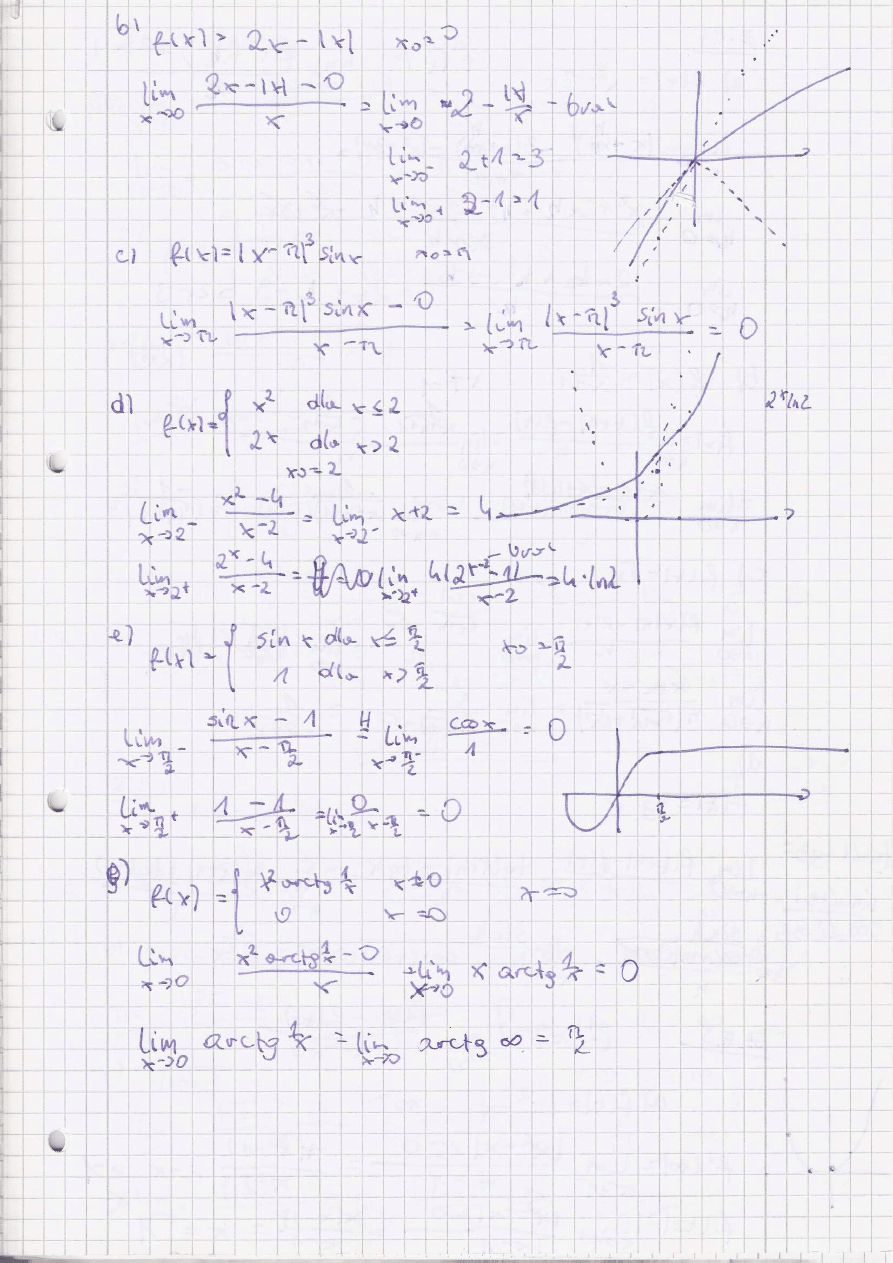 b) f(x) = 2x - |x|   x0 = 0
lim x→0 (2x - |x| - 0)/x = lim x→0 2 - |x|/x - brak
lim x→0⁻ 2+1 = 3
lim x→0⁺ 2-1 = 1
c) f(x) = |x-π|³ sinx   x0 = π
lim x→π (|x-π|³ sinx - 0)/(x-π) = lim x→π (|x-π|³ sinx)/(x-π) = 0
d) f(x) = { x² dla x ≤ 2
2ˣ dla x > 2
x0 = 2
2ˣ ln2
lim x→2⁻ (x²-4)/(x-2) = lim x→2⁻ x+2 = 4
- brak
lim x→2⁺ (2ˣ-4)/(x-2) = lim x→2⁺ 4(2ˣ⁻²-1)/(x-2) = 4·ln2
e) f(x) = { sin x dla x ≤ π/2   x0 = π/2
1 dla x > π/2
lim x→π/2⁻ (sin x - 1)/(x - π/2) =ᴴ lim x→π/2⁻ cosx/1 = 0
π/2
lim x→π/2⁺ (1-1)/(x-π/2) = lim x→π/2 0/(x-π/2) = 0
g) f(x) = { x² arctg 1/x   x ≠ 0   x = 0
0   x = 0
lim x→0 (x² arctg 1/x - 0)/x = lim x→0 x arctg 1/x = 0
lim x→0 arctg 1/x = lim x→0 arctg ∞ = π/2